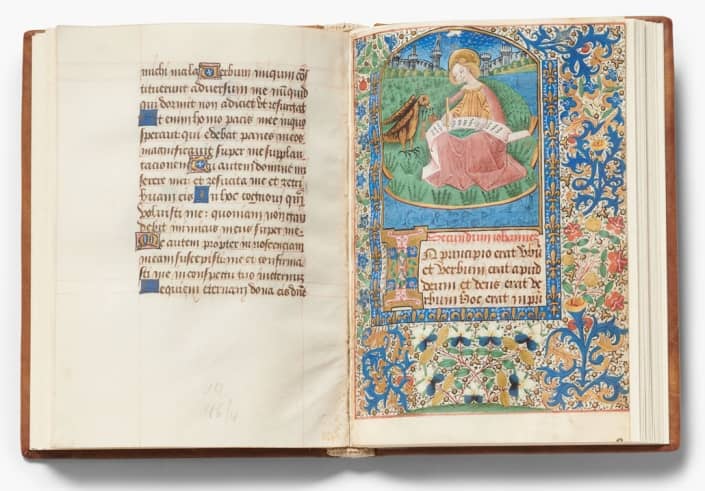 michi mala Verbum iniquum cõ
stituerunt adversum me nũquid
qui dormit non adiciet ut resurgat
Et enim homo pacis mee in quo
speravi qui edebat panes meos
magnificavit super me supplan
tacionem Tu autem domine mi
serere mei et resuscita me et retri
buam eis In hoc cognovi qm̃
voluisti me: quoniam non gau
debit inimicus meus super me
Me autem propter innocenciam
meam suscepisti me et confirma
sti me in conspectu tuo in eternũ
Requiem eternam dona eis dñe
Secundum iohannes
In principio erat vbũ
et verbum erat apud
deum et deus erat ve
rbum hoc erat in pri